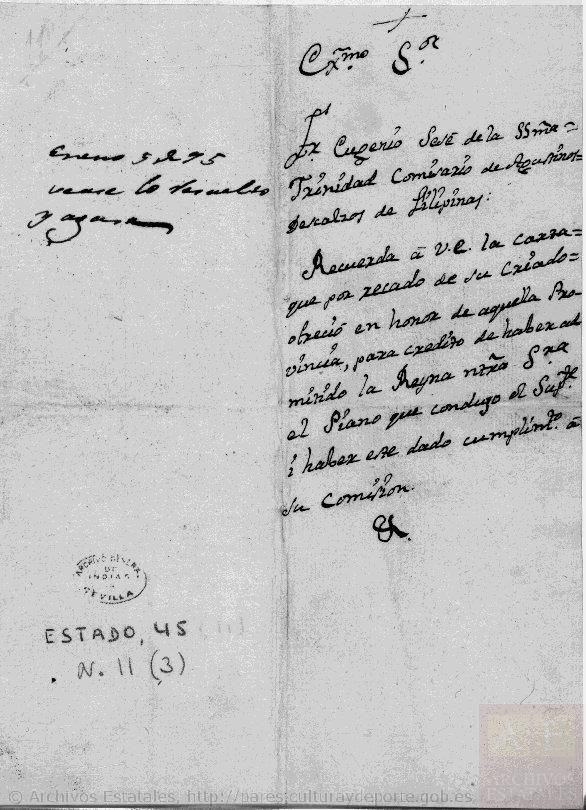 Exmo Sor
Fr Eugenio Sesé de la SSma=
Trinidad Comisario de Agustinos=
Descalzos de Filipinas:
Recuerda â V.E. la carta=
que por recado de su Criado=
ofreció en honor de aquella Pro-
vincia, para credito de haber ad
mitido la Reyna ntra Sra
el Piano que condugo el Supte
i haber este dado cumplimto â
su Comision.
Enero 5, 95
vease lo resuelto
y
ARCHIVO GENERAL
DE
INDIAS
SEVILLA
ESTADO, 45
N. 11 (3)
© Archivos Estatales, http://pares.culturaydeporte.gob.es
Archivos
Estatales